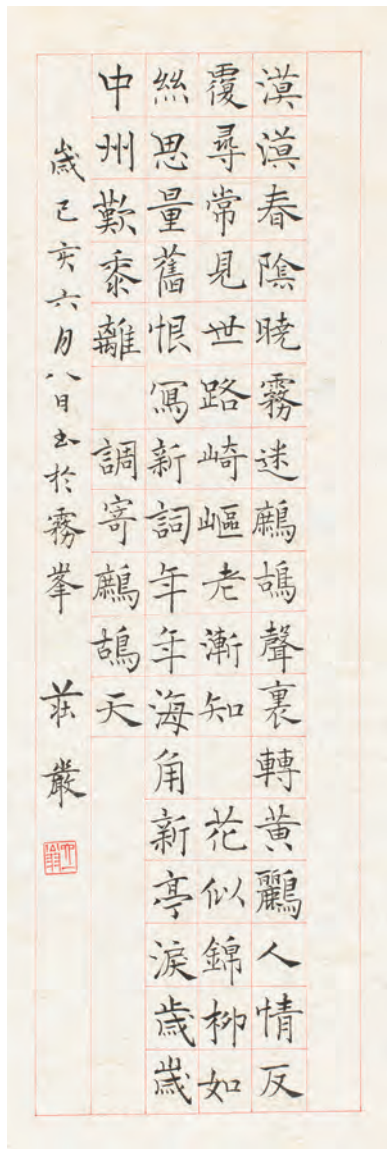 漠漠春陰曉霧迷鷓鴣聲裏轉黃鸝人情反
覆尋常見世路崎嶇老漸知 花似錦柳如
絲思量舊恨寫新詞年年海角新亭淚歲歲
中州歎黍離 調寄鷓鴣天
歲己亥六月八日书於霧峯 莊嚴
六一翁